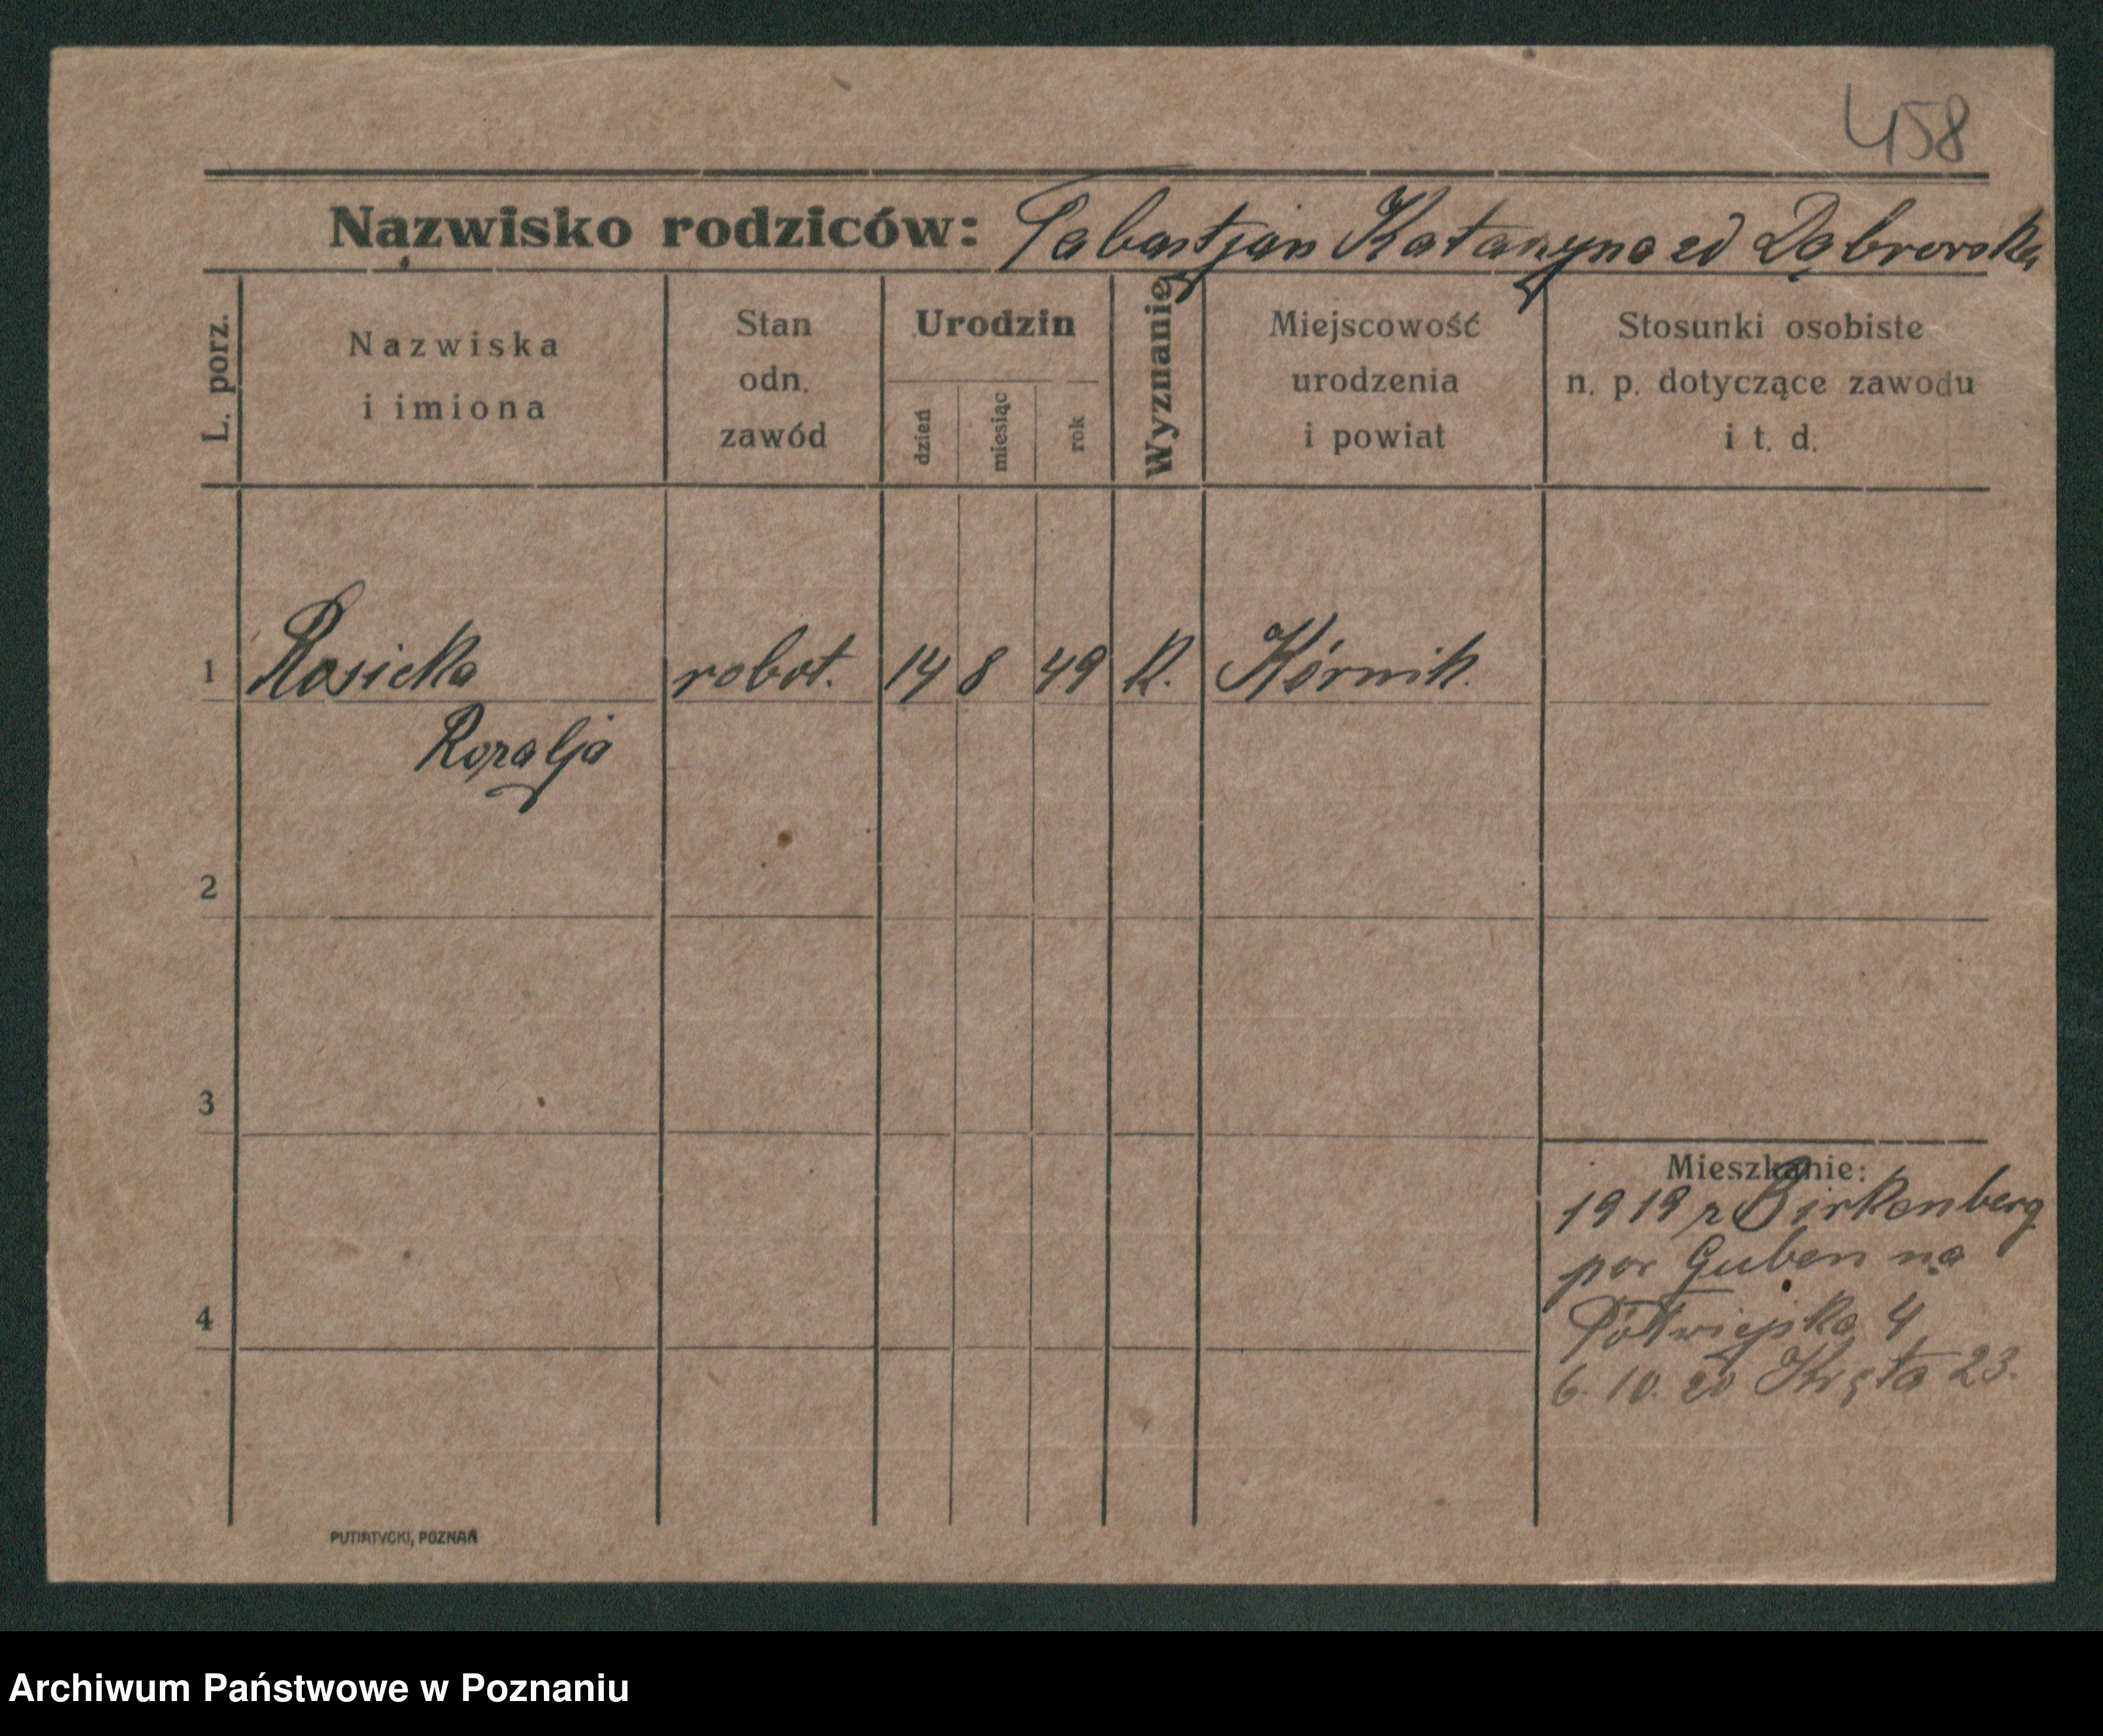 458
Nazwisko rodziców: Sabastjan Katarzyna zd Dąbrowska
L. porz.
Nazwiska
i imiona
Stan
odn.
zawód
Urodzin
dzień
miesiąc
rok
Wyznanie
Miejscowość
urodzenia
i powiat
Stosunki osobiste
n. p. dotyczące zawodu
i t. d.
1 Rosicka robot. 14 8 49 K. Kórnik.
Rozalja
2
3
4
Mieszkanie:
1919 r Birkenberg
pow Guben na
Półwiejska 4
6. 10. 20 Kręta 23.
PUTIATYCKI, POZNAŃ
Archiwum Państwowe w Poznaniu